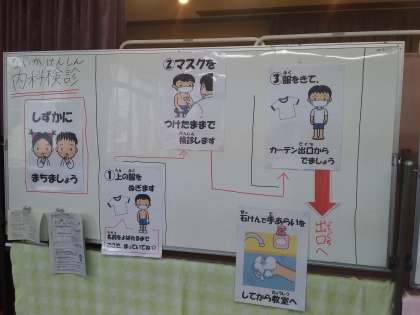 ないかけんしん
内科検診
しずかに
まちましょう
①上の服を
ぬぎます
名前をよばれるまで
ここで、まっていてね☆
②マスクを
つけたままで
けんしん
検診します
ふく
③服をきて、
でぐち
カーテン出口から
でましょう
でぐち
出口へ
せっ て
石けんで手あらいを
きょうしつ
してから教室へ